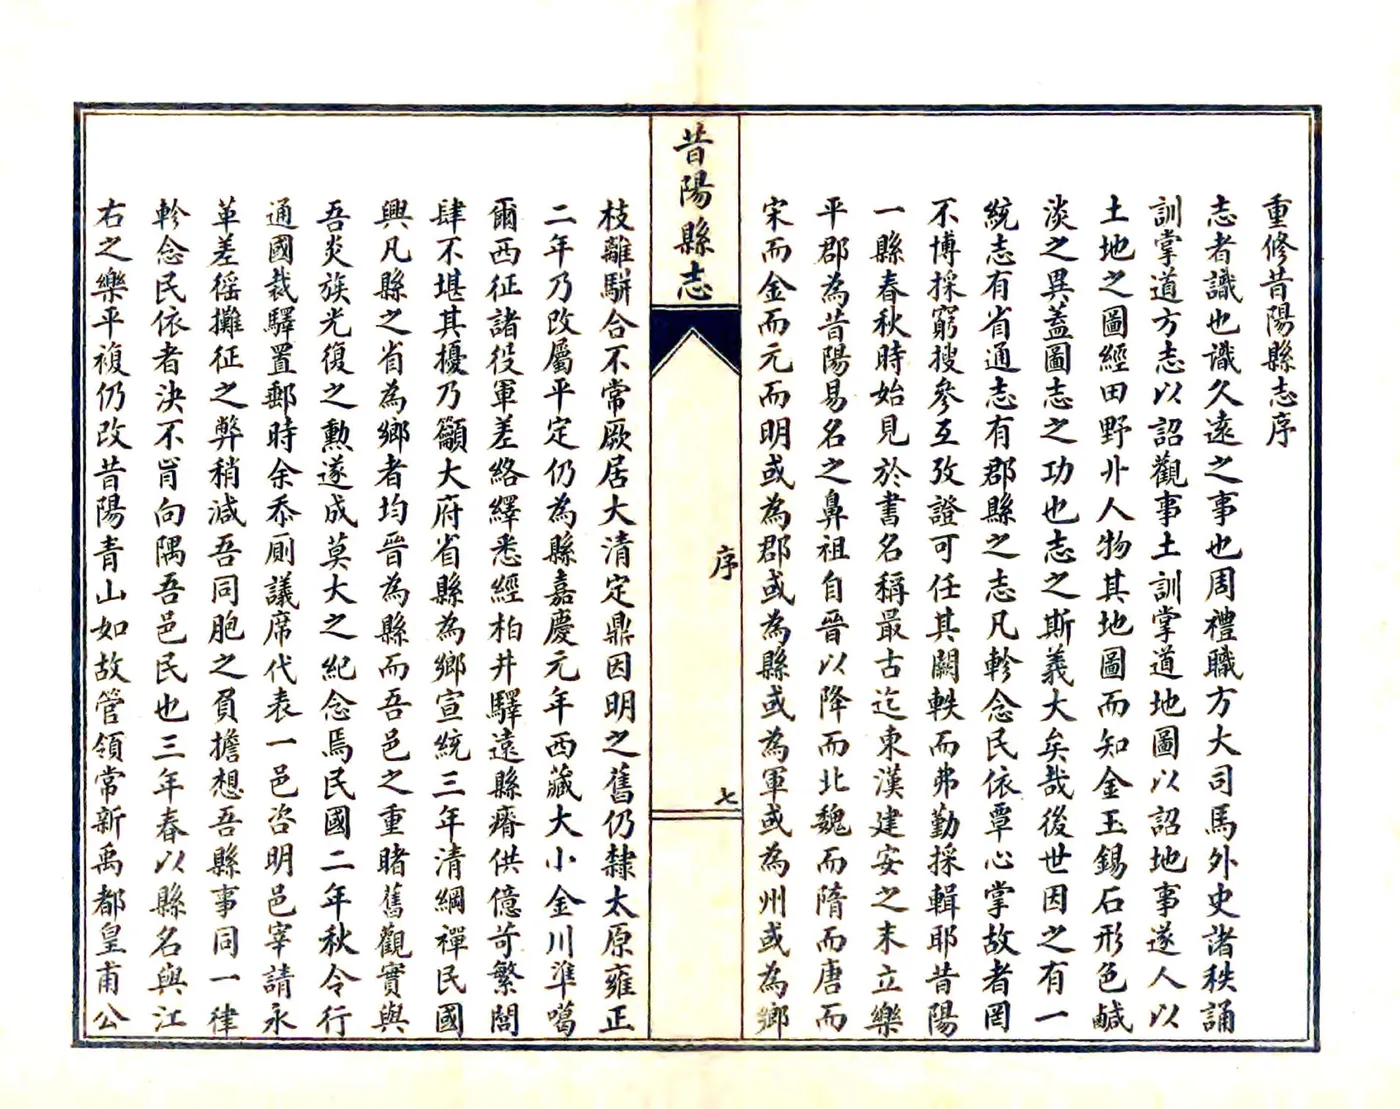 重修昔陽縣志序
志者識也識久遠之事也周禮職方大司馬外史諸秩誦
訓掌道方志以詔觀事土訓掌道地圖以詔地事遂人以
土地之圖經田野廾人物其地圖而知金玉錫石形色鹹
淡之異蓋圖志之功也志之斯義大矣哉後世因之有一
統志有省通志有郡縣之志凡軫念民依覃心掌故者罔
不博採窮搜參互攷證可任其闕軼而弗勤採輯耶昔陽
一縣春秋時始見於書名稱最古迄東漢建安之末立樂
平郡為昔陽易名之鼻祖自晉以降而北魏而隋而唐而
宋而金而元而明或為郡或為縣或為軍或為州或為鄉
昔陽縣志
序
七
枝離駢合不常厥居大清定鼎因明之舊仍隸太原雍正
二年乃改屬平定仍為縣嘉慶元年西藏大小金川準噶
爾西征諸役軍差絡繹悉經柏井驛遠縣瘠供億苛繁閭
肆不堪其擾乃籲大府省縣為鄉宣統三年清綱禪民國
興凡縣之省為鄉者均晉為縣而吾邑之重睹舊觀實與
吾炎族光復之勲遂成莫大之紀念焉民國二年秋令行
通國裁驛置郵時余忝廁議席代表一邑咨明邑宰請永
革差徭攤征之弊稍減吾同胞之負擔想吾縣事同一律
軫念民依者決不肯向隅吾邑民也三年春以縣名與江
右之樂平複仍改昔陽青山如故管領常新禹都皇甫公